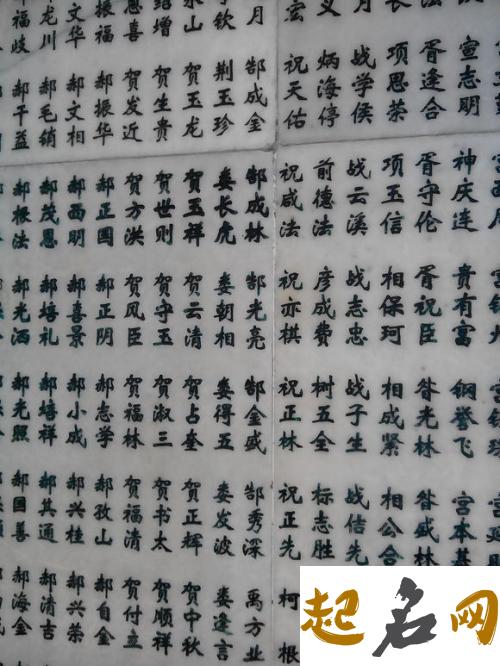 宣志明 神庆连 贵有富 钢誉飞 宫本基
胥逢合 胥守伦 胥祝臣 昝光林 昝盛林
长 项思荣 项玉信 相保珂 相成紧 相公合
月 战学侯 战云溪 战志忠 战子生 战佶先
义 炳海停 前德法 彦成费 树五全 标志胜
宏 祝天佑 祝咸法 祝亦棋 祝正林 祝正先 柯 根
月 郜成金 郜成林 郜光亮 郜金盛 郜秀深 禹方业
钦 荆玉珍 娄长虎 娄朝相 娄得五 娄发波 娄逢言
山 贺玉龙 贺玉祥 贺云清 贺占奎 贺正辉 贺中秋
绍增 贺生贵 贺世则 贺守玉 贺淑三 贺书太 贺顺祥
恩喜 贺发近 贺方洪 贺风臣 贺福林 贺福清 贺付立
振福 郝振华 郝正国 郝正阴 郝志学 郝孜山 郝自金
文华 郝文相 郝西明 郝喜景 郝小成 郝兴桂 郝兴荣
龙川 郝毛销 郝茂恩 郝培礼 郝培祥 郝其通 郝清吉
福歧 郝干益 郝根法 郝光洒 郝光照 郝国善 郝海金
起名网